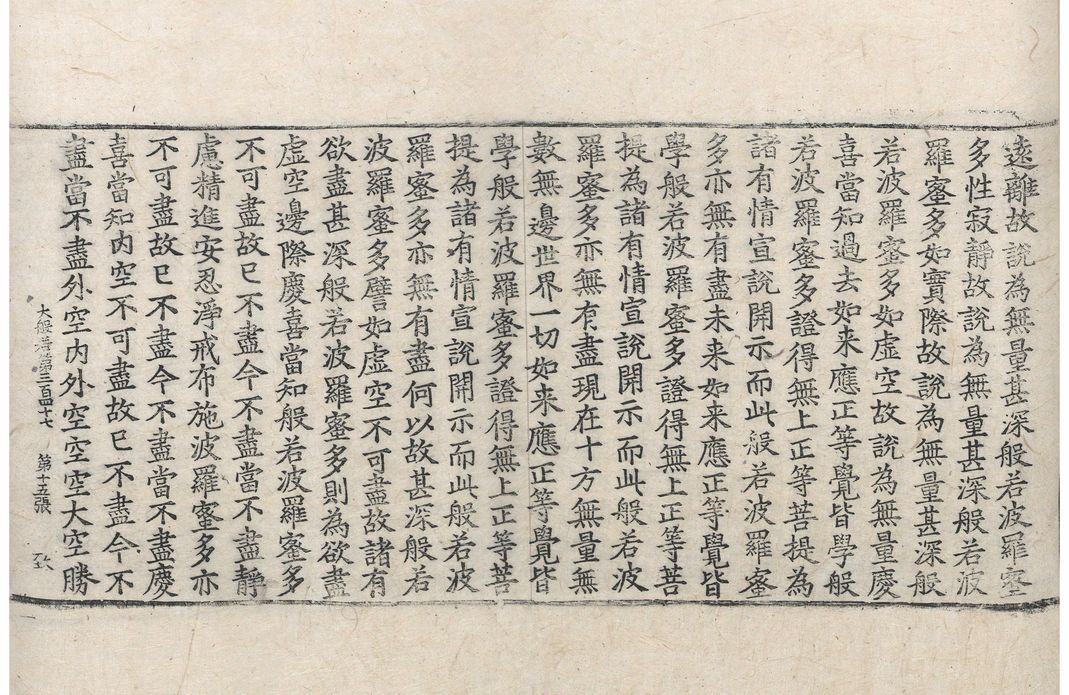 遠離故說為無量甚深般若波羅蜜
多性寂靜故說為無量甚深般若波
羅蜜多如實際故說為無量甚深般
若波羅蜜多如虛空故說為無量慶
喜當知過去如来應正等覺皆學般
若波羅蜜多證得無上正等菩提為
諸有情宣說開示而此般若波羅蜜
多亦無有盡未来如来應正等覺皆
學般若波羅蜜多證得無上正等菩
提為諸有情宣說開示而此般若波
羅蜜多亦無有盡現在十方無量無
數無邊世界一切如来應正等覺皆
學般若波羅蜜多證得無上正等菩
提為諸有情宣說開示而此般若波
羅蜜多亦無有盡何以故甚深般若
波羅蜜多譬如虛空不可盡故諸有
欲盡甚深般若波羅蜜多則為欲盡
虛空邊際慶喜當知般若波羅蜜多
不可盡故已不盡今不盡當不盡靜
慮精進安忍淨戒布施波羅蜜多亦
不可盡故已不盡今不盡當不盡慶
喜當知內空不可盡故已不盡今不
盡當不盡外空內外空空空大空勝
大般若第三百四十七 第十五張 致